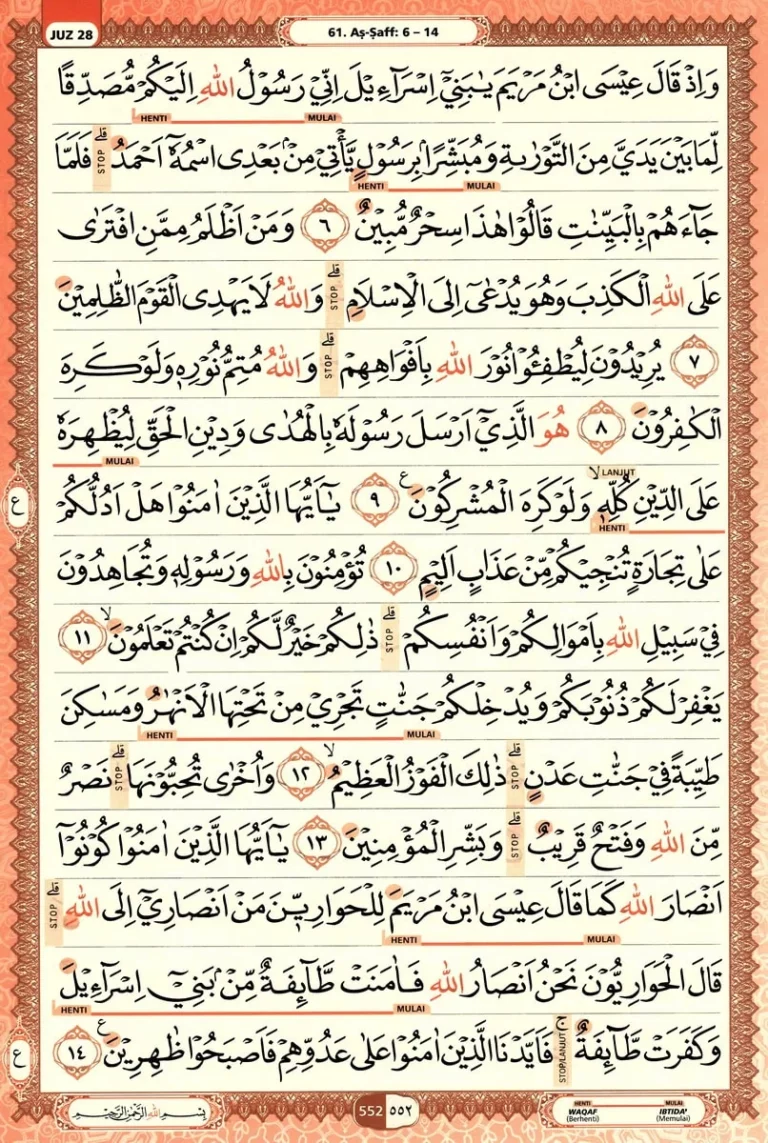 JUZ 28
61. Aṣ-Ṣaff: 6 – 14
وَاِذْ قَالَ عِيْسَى ابْنُ مَرْيَمَ يٰبَنِيْٓ اِسْرَاۤءِيْلَ اِنِّيْ رَسُوْلُ اللّٰهِ اِلَيْكُمْ مُّصَدِّقًا
HENTI MULAI
لِّمَا بَيْنَ يَدَيَّ مِنَ التَّوْرٰىةِ وَمُبَشِّرًاۢ بِرَسُوْلٍ يَّأْتِيْ مِنْۢ بَعْدِى اسْمُهٗٓ اَحْمَدُۗ فَلَمَّا
STOP
HENTI MULAI
جَاۤءَهُمْ بِالْبَيِّنٰتِ قَالُوْا هٰذَا سِحْرٌ مُّبِيْنٌ ٦ وَمَنْ اَظْلَمُ مِمَّنِ افْتَرٰى
عَلَى اللّٰهِ الْكَذِبَ وَهُوَ يُدْعٰىٓ اِلَى الْاِسْلَامِۗ وَاللّٰهُ لَا يَهْدِى الْقَوْمَ الظّٰلِمِيْنَ
STOP
٧ يُرِيْدُوْنَ لِيُطْفِـُٔوْا نُوْرَ اللّٰهِ بِاَفْوَاهِهِمْۗ وَاللّٰهُ مُتِمُّ نُوْرِهٖ وَلَوْ كَرِهَ
STOP
الْكٰفِرُوْنَ ٨ هُوَ الَّذِيْٓ اَرْسَلَ رَسُوْلَهٗ بِالْهُدٰى وَدِيْنِ الْحَقِّ لِيُظْهِرَهٗ
MULAI
LANJUT
عَلَى الدِّيْنِ كُلِّهٖۙ وَلَوْ كَرِهَ الْمُشْرِكُوْنَ ࣖ ٩ يٰٓاَيُّهَا الَّذِيْنَ اٰمَنُوْا هَلْ اَدُلُّكُمْ
HENTI
ع
عَلٰى تِجَارَةٍ تُنْجِيْكُمْ مِّنْ عَذَابٍ اَلِيْمٍ ١٠ تُؤْمِنُوْنَ بِاللّٰهِ وَرَسُوْلِهٖ وَتُجَاهِدُوْنَ
فِيْ سَبِيْلِ اللّٰهِ بِاَمْوَالِكُمْ وَاَنْفُسِكُمْۗ ذٰلِكُمْ خَيْرٌ لَّكُمْ اِنْ كُنْتُمْ تَعْلَمُوْنَۙ ١١
STOP
يَغْفِرْ لَكُمْ ذُنُوْبَكُمْ وَيُدْخِلْكُمْ جَنّٰتٍ تَجْرِيْ مِنْ تَحْتِهَا الْاَنْهٰرُ وَمَسٰكِنَ
HENTI MULAI
طَيِّبَةً فِيْ جَنّٰتِ عَدْنٍۗ ذٰلِكَ الْفَوْزُ الْعَظِيْمُۙ ١٢ وَاُخْرٰى تُحِبُّوْنَهَاۗ نَصْرٌ
STOP STOP
مِّنَ اللّٰهِ وَفَتْحٌ قَرِيْبٌۗ وَبَشِّرِ الْمُؤْمِنِيْنَ ١٣ يٰٓاَيُّهَا الَّذِيْنَ اٰمَنُوْا كُوْنُوْٓا
STOP
اَنْصَارَ اللّٰهِ كَمَا قَالَ عِيْسَى ابْنُ مَرْيَمَ لِلْحَوَارِيّٖنَ مَنْ اَنْصَارِيْٓ اِلَى اللّٰهِۗ
STOP
HENTI MULAI
قَالَ الْحَوَارِيُّوْنَ نَحْنُ اَنْصَارُ اللّٰهِ فَاٰمَنَتْ طَّاۤىِٕفَةٌ مِّنْۢ بَنِيْٓ اِسْرَاۤءِيْلَ
HENTI MULAI
وَكَفَرَتْ طَّاۤىِٕفَةٌۚ فَاَيَّدْنَا الَّذِيْنَ اٰمَنُوْا عَلٰى عَدُوِّهِمْ فَاَصْبَحُوْا ظٰهِرِيْنَ ࣖ ١٤
STOP/LANJUT
ع
بِسْمِ اللّٰهِ الرَّحْمٰنِ الرَّحِيْمِ
552 ٥٥٢
HENTI MULAI
WAQAF (Berhenti) IBTIDA' (Memulai)